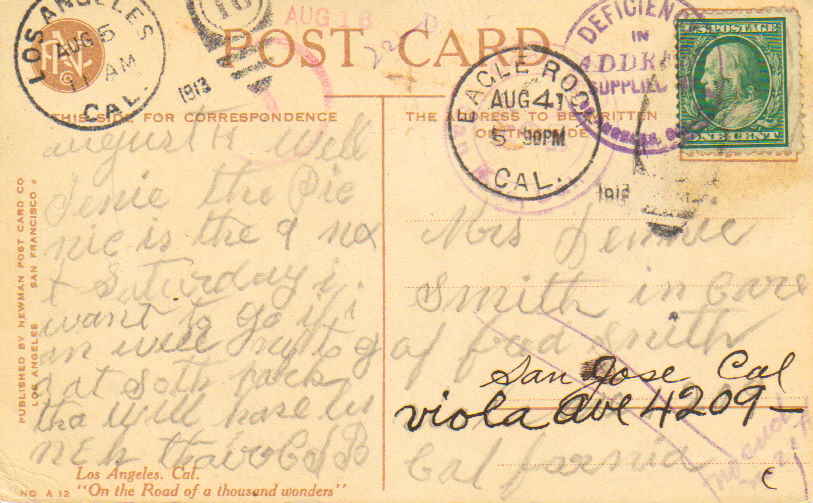 LOS ANGELES
CAL.
AUG 5
AM
1913
AUG 18
POST CARD
EAGLE ROCK
CAL.
AUG 4
5 30PM
191
DEFICIEN
IN
ADDRE
SUPPLIED
U.S. POSTAGE
ONE CENT
THIS SIDE FOR CORRESPONDENCE
THE ADDRESS TO BE WRITTEN
ON THIS SIDE
august Will
Jenie the Pic
nic is the 9 nex
t Saturday i
want to go if i
an will
at Soth Park
tha will have lu
nch
Mrs Jennie
Smith in Care
of fred Smith
San Jose Cal
viola Ave 4209-
Califarnia
PUBLISHED BY NEWMAN POST CARD CO
LOS ANGELES SAN FRANCISCO
Los Angeles, Cal.
NO. A 12 "On the Road of a thousand wonders"